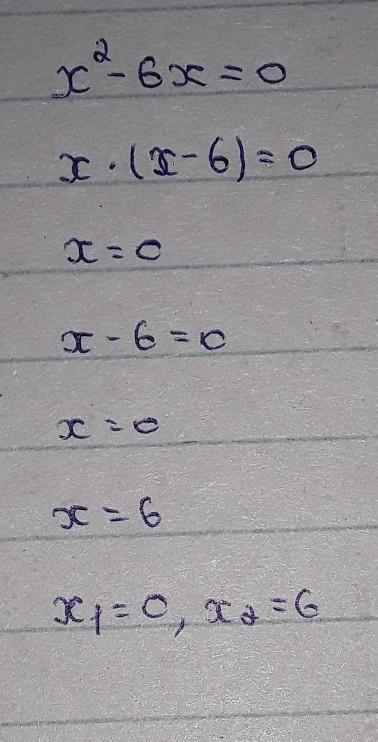 x² - 6x = 0
x · (x - 6) = 0
x = 0
x - 6 = 0
x = 0
x = 6
x₁ = 0, x₂ = 6